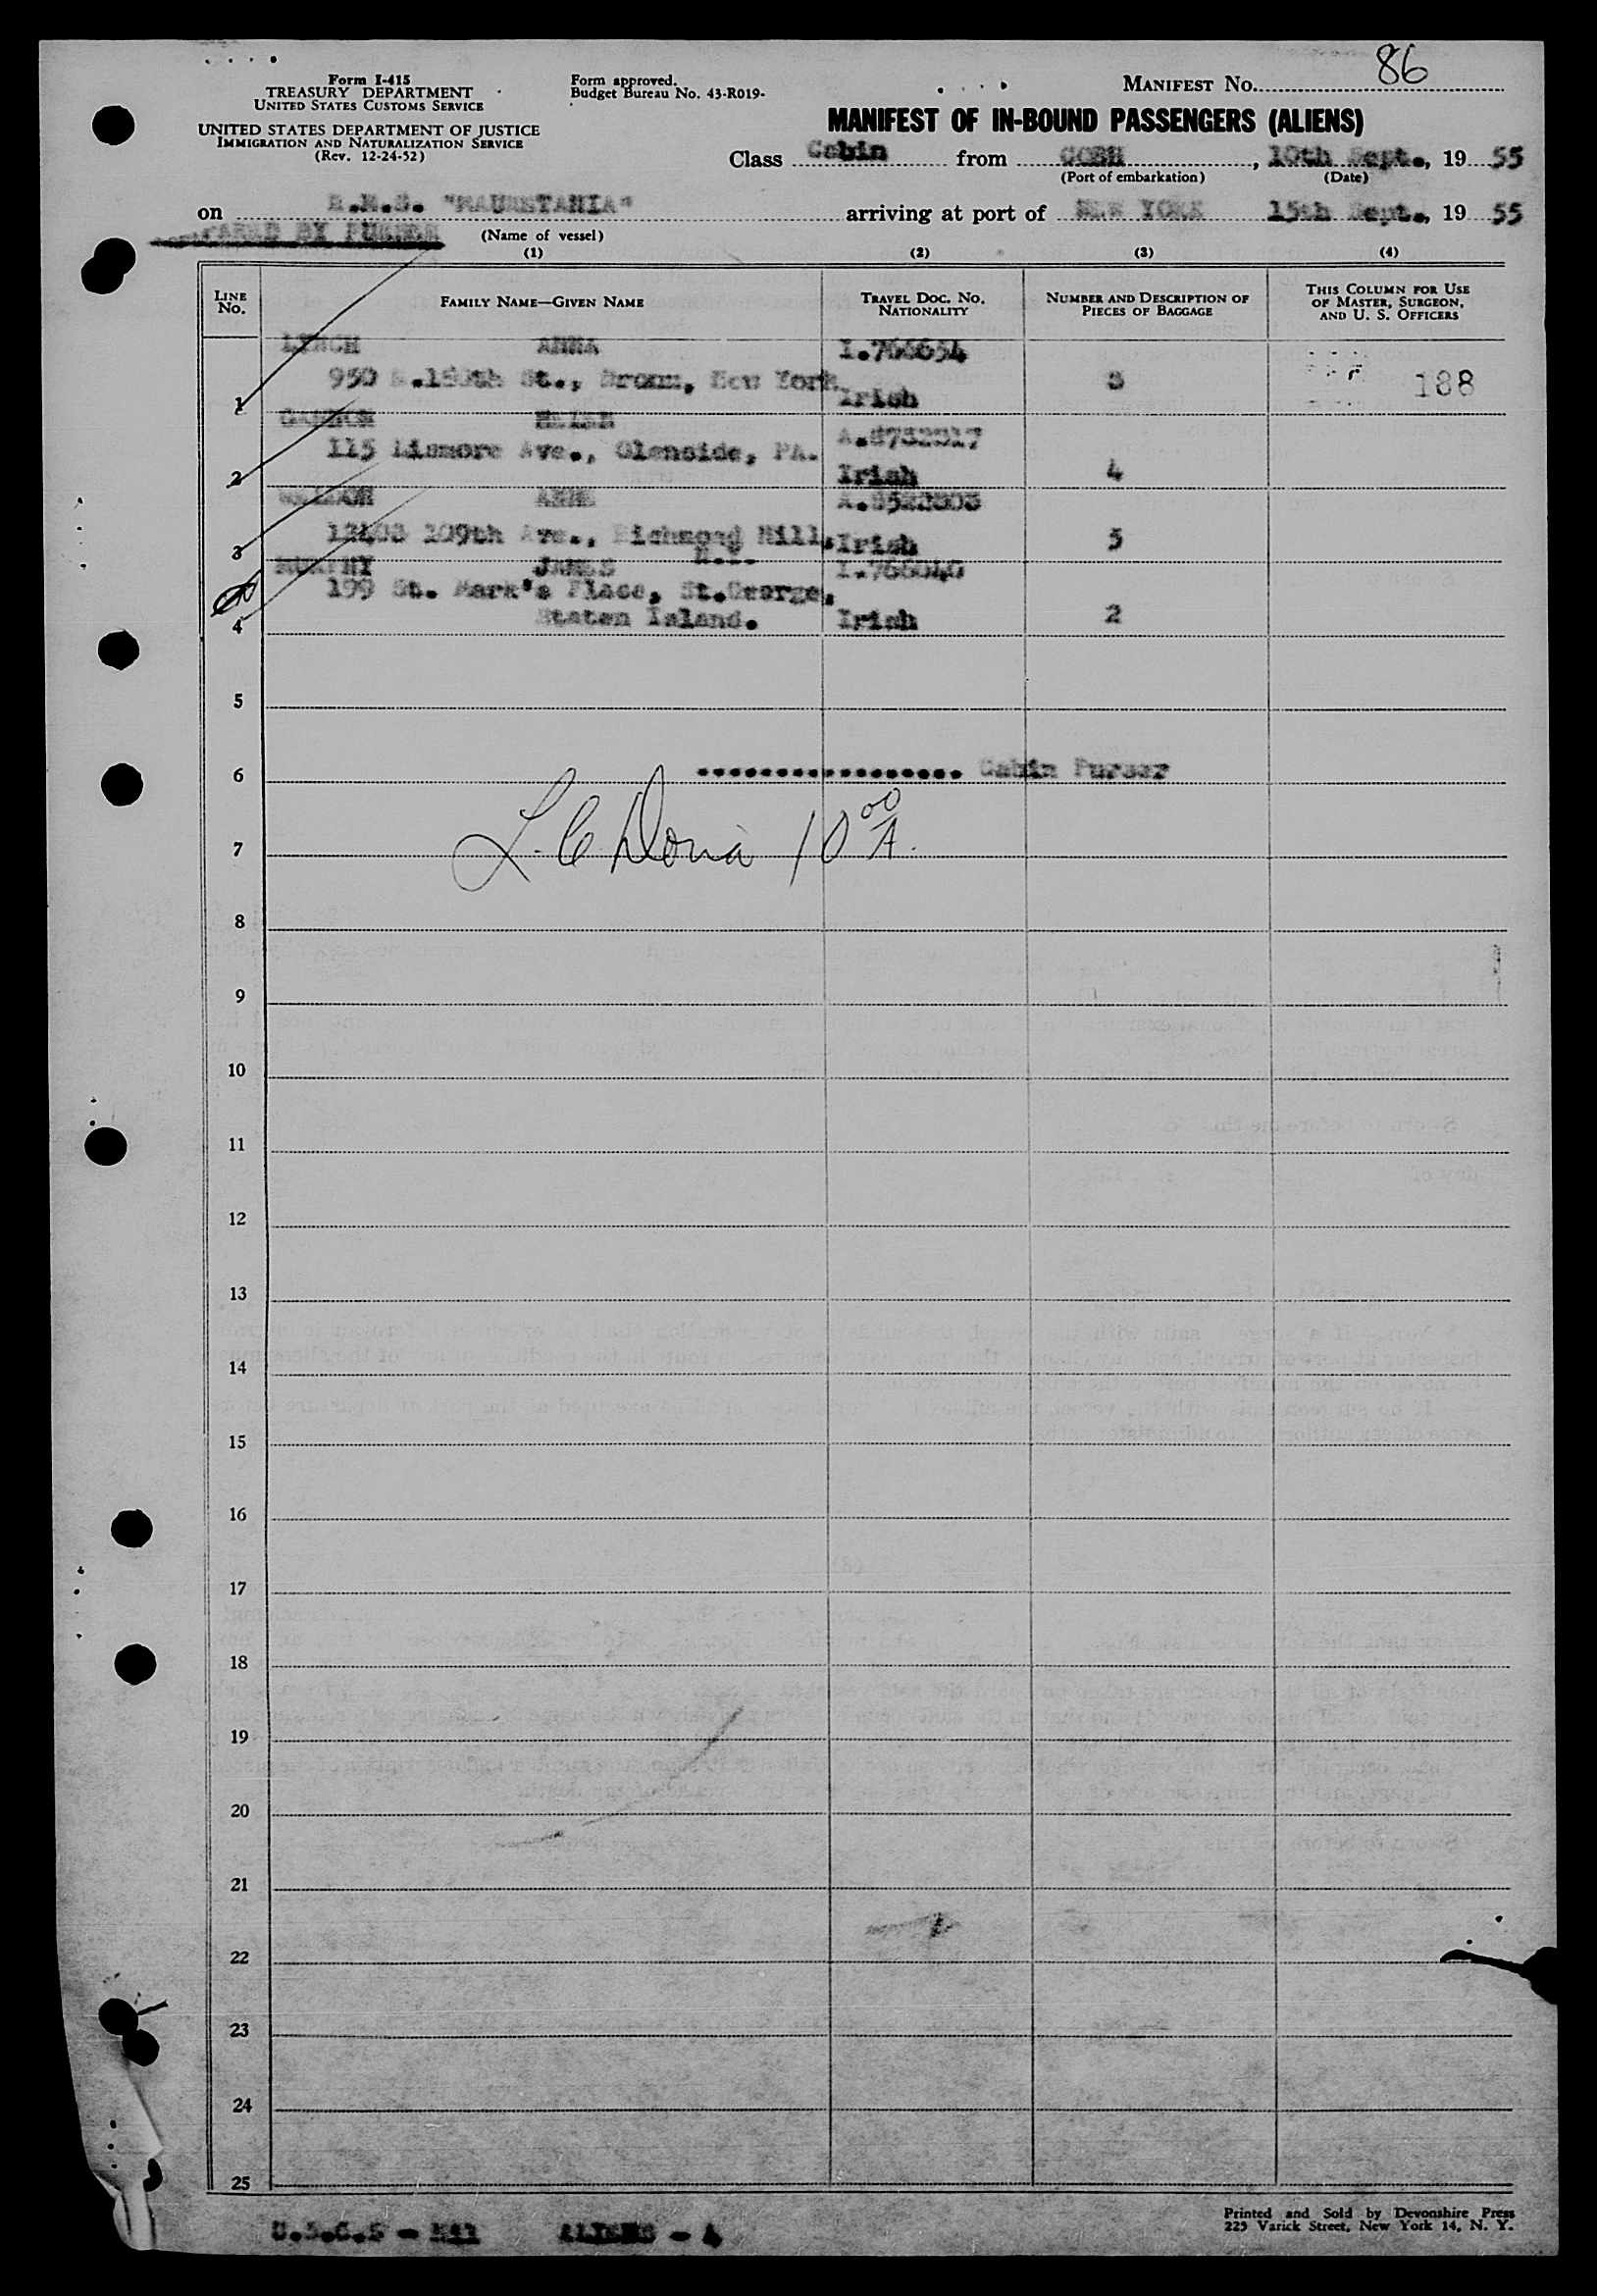 86
Form I-415
TREASURY DEPARTMENT
UNITED STATES CUSTOMS SERVICE
Form approved.
Budget Bureau No. 43-R019-
MANIFEST No.
UNITED STATES DEPARTMENT OF JUSTICE
IMMIGRATION AND NATURALIZATION SERVICE
(Rev. 12-24-52)
MANIFEST OF IN-BOUND PASSENGERS (ALIENS)
Class Cabin from COBH, 10th Sept., 19 55
(Port of embarkation) (Date)
on R.M.S. "MAURETANIA" arriving at port of NEW YORK 15th Sept., 19 55
BY PURSER
(Name of vessel)
(1) (2) (3) (4)
LINE No. FAMILY NAME—GIVEN NAME TRAVEL DOC. No. NATIONALITY NUMBER AND DESCRIPTION OF PIECES OF BAGGAGE THIS COLUMN FOR USE OF MASTER, SURGEON, AND U. S. OFFICERS
LYNCH ANNA I.766654
950 St., Bronx, New York Irish 3 188
1
HELEN
115 Lismore Ave., Glenside, PA. Irish 4
2
ANNE
109th Ave., Richmond Hill, Irish 5
3
MURPHY JAMES
199 St. Mark's Place, St.George,
4 Staten Island. Irish 2
5
6 ................. Cabin Purser
7 L. C. 10 00 A.
8
9
10
11
12
13
14
15
16
17
18
19
20
21
22
23
24
25
U.S.C.S - Nil ALIENS - 4
Printed and Sold by Devonshire Press
225 Varick Street, New York 14, N. Y.